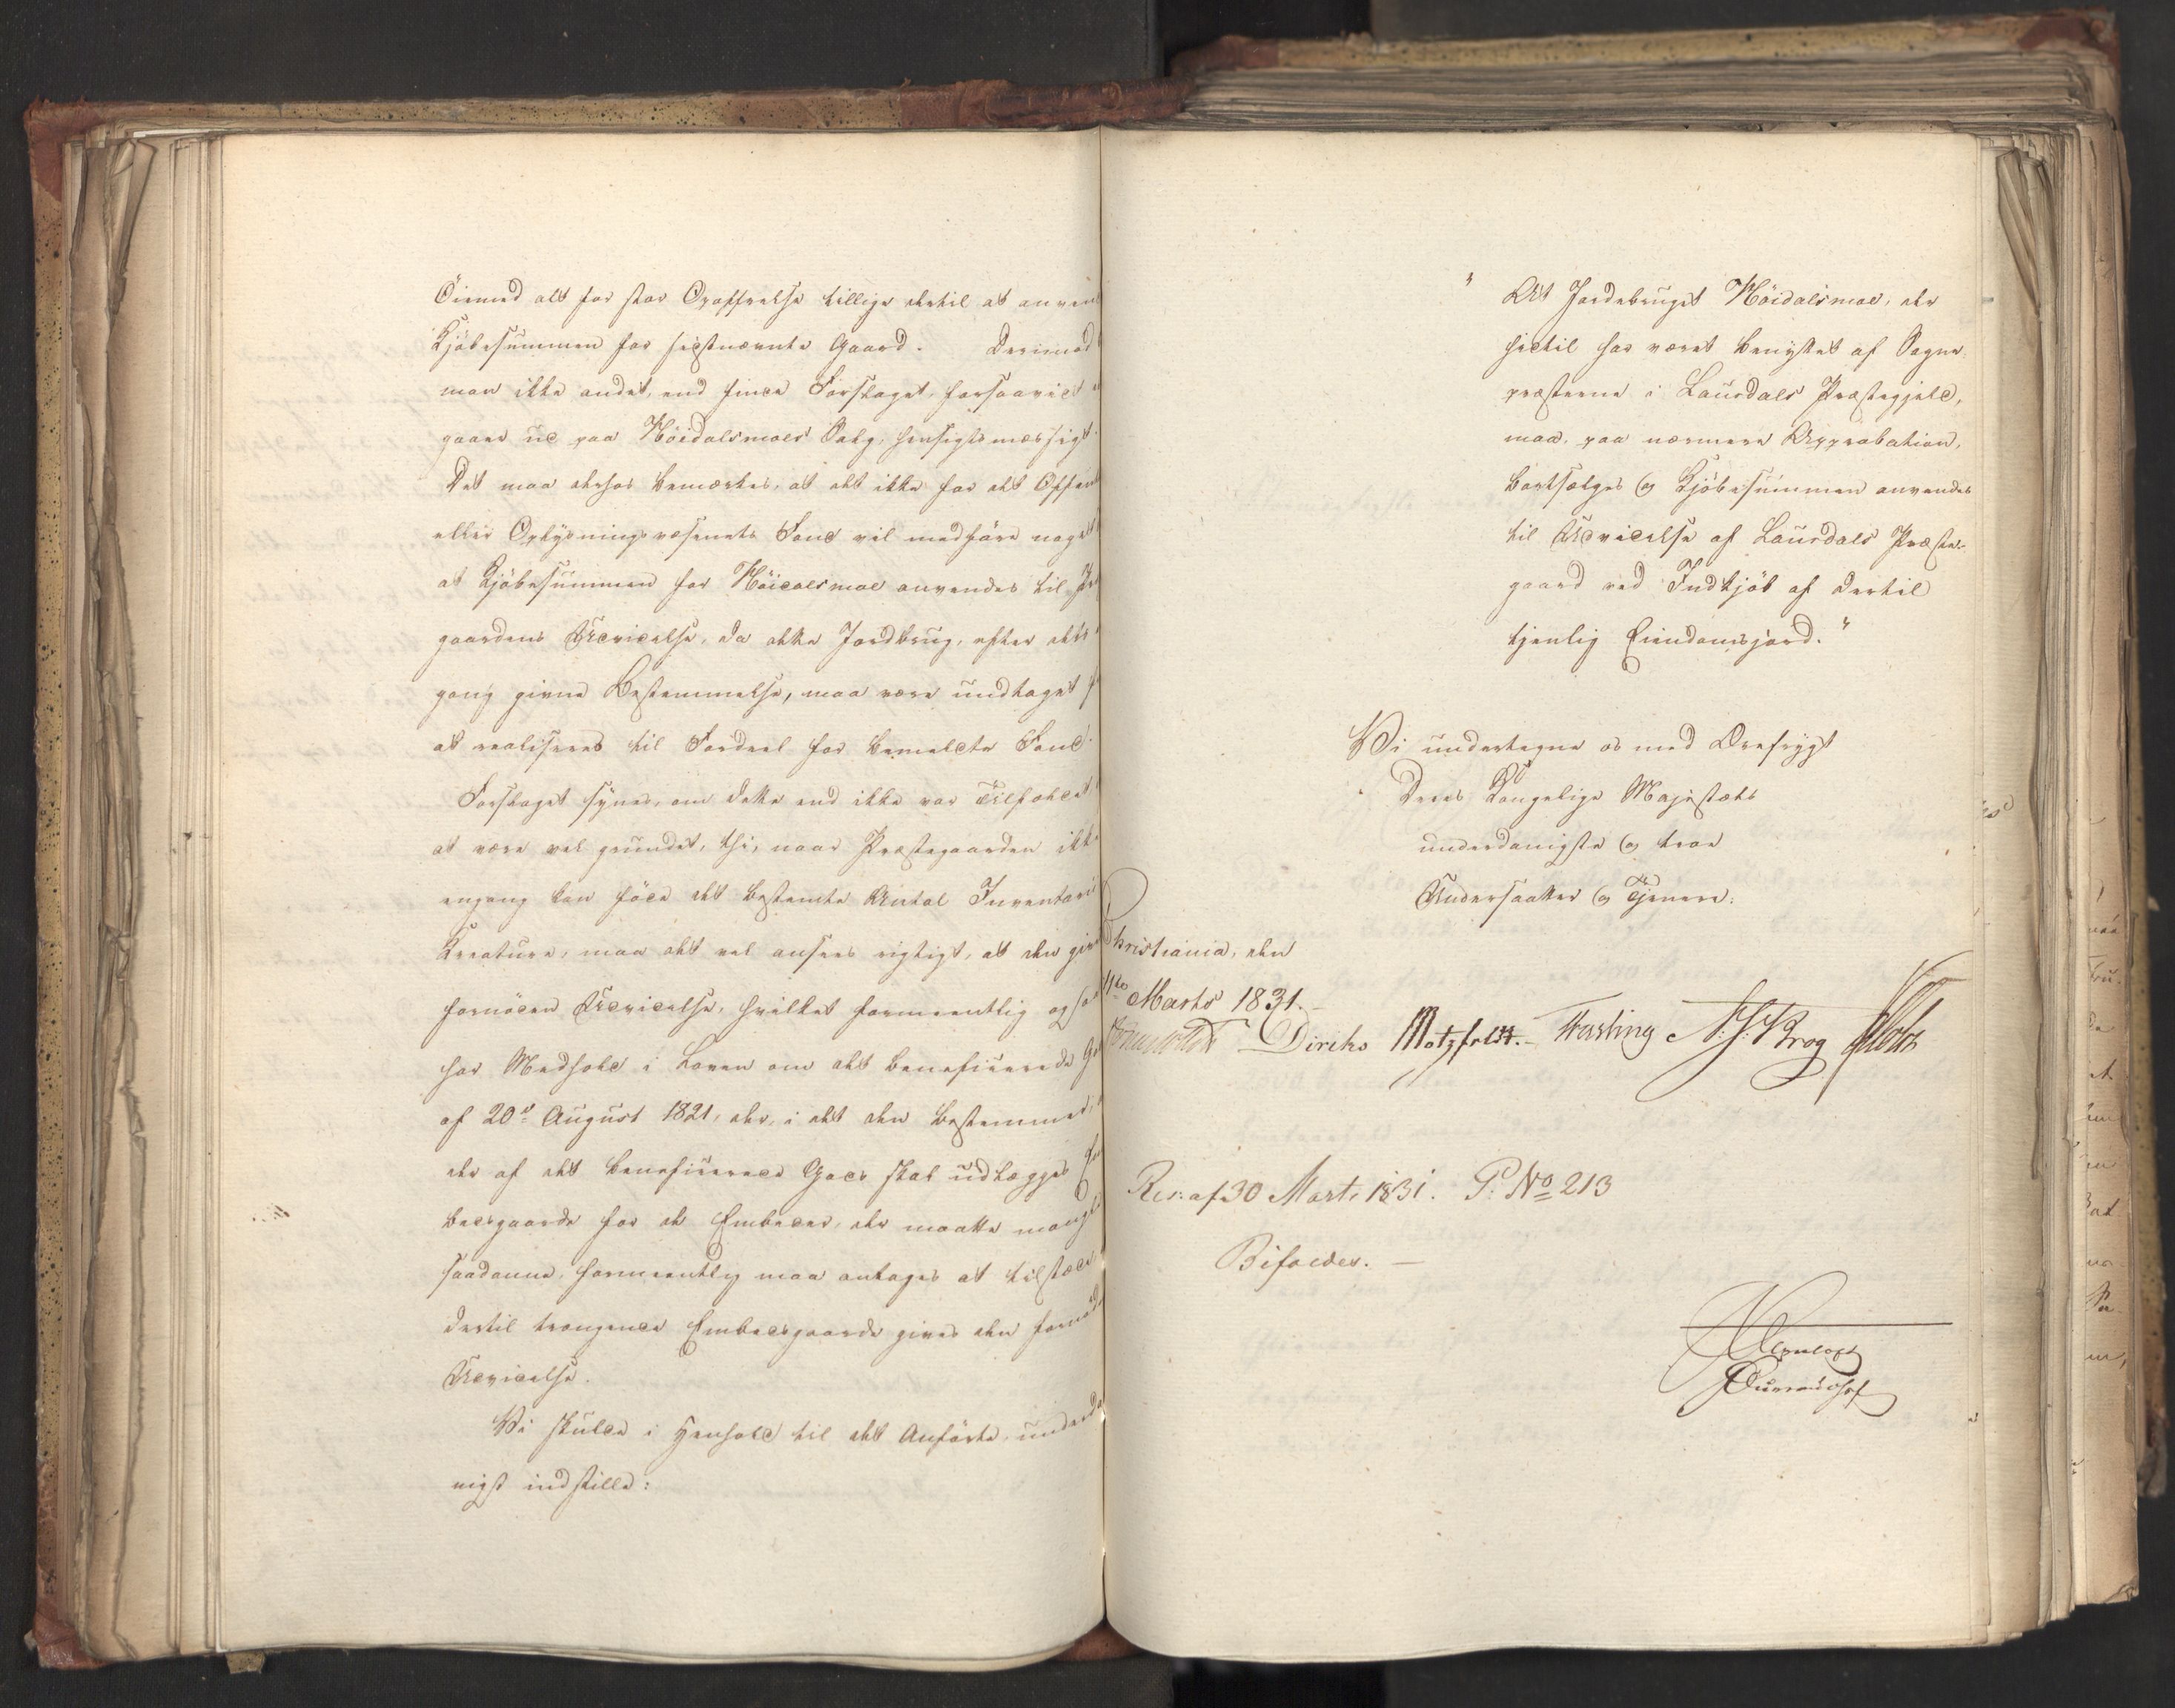 Öiemed alt for stor Opoffrelse tillige dertil at anven
Kjöbesummen for sidstnævnte Gaard. Derimod
man ikke andet, end finde Forslaget, forsaavidt
gaaer ud paa Höidalsmoes Salg, hensigtsmæssigt.
Det maa derhos bemærkes, at det ikke for det Offent
eller Oplysningsvæsenets Fond vil medföre noget
at Kjöbesummen for Höidalsmoe anvendes til Præ
gaardens Udvidelse, da dette Jordbrug, efter den
gang givne Bestemmelse, maa være undtaget f
at realiseres til Fordeel for bemeldte Fond.
Forslaget synes, om dette end ikke var Tilfældet
at være vel grundet, thi, naar Præstegaarden ikke
engang kan föde det bestemte Antal Inventarii
Kreature, maa det vel ansees rigtigt, at den give
fornöden Udvidelse, hvilket formeentlig ogsaa
har Medhold i Loven om det beneficerede Go
af 20de August 1821, der, i det den bestemmer,
der af det beneficerede Gods skal udlægges Em
bedsgaarde for de Embeder, der maatte mangle
saadanne, formeentlig maa antages at tilstæde
dertil trængende Embedsgaarde gives den fornödn
Udvidelse.
Vi skulde i Henhold til det Anförte, underda
nigst indstille:
" At Jordebruget Höidalsmoe, der
hidtil har været benyttet af Sogne-
præsterne i Laurdals Præstegjeld,
maa, paa nærmere Approbation,
bortsælges og Kjöbesummen anvendes
til Udvidelse af Laurdals Præste-
gaard ved Indkjöb af dertil
tjenlig Eiendomsjord."
Vi undertegne os med Ærefrygt
Deres Kongelige Majestæts
underdanigste og troe
Undersaatter og Tjenere.
Christiania, den
Marts 1831.
Diriks Motzfeldt. Fasting N. J. Krog
Res: af 30 Marts 1831. P: No 213
Bifaldes. —